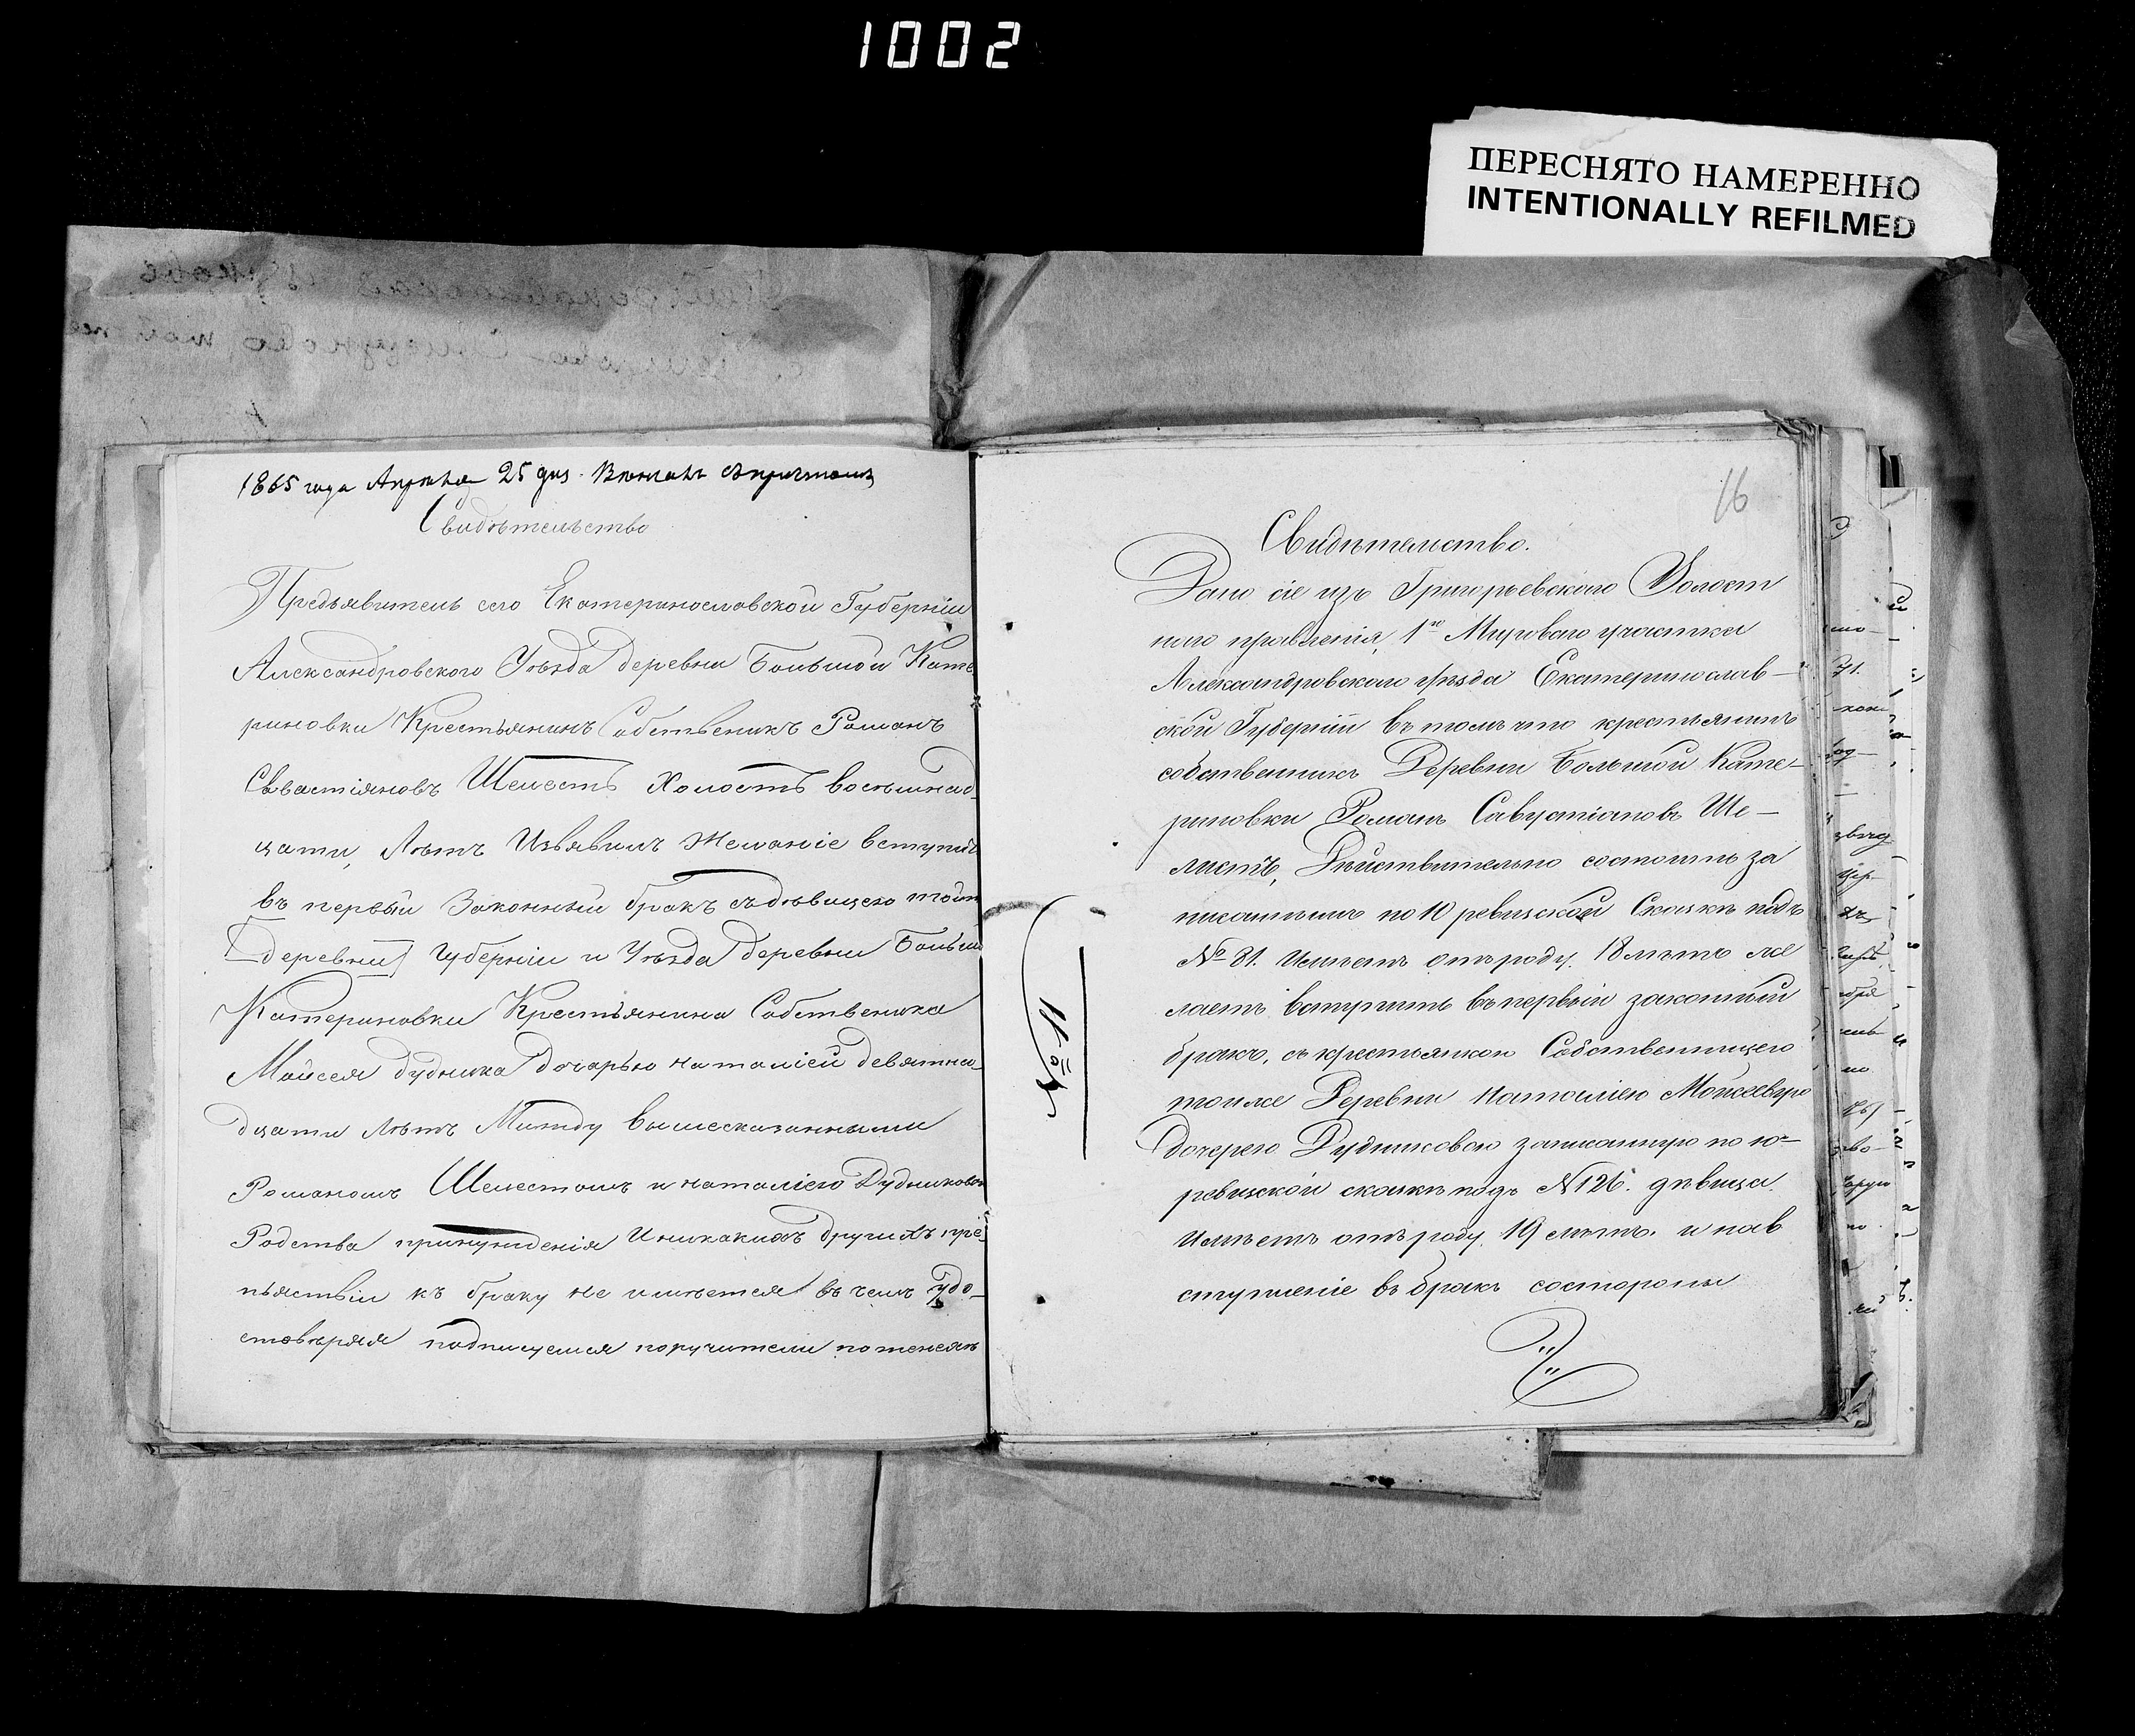 1002
ПЕРЕСНЯТО НАМЕРЕННО
INTENTIONALLY REFILMED
1865 года Апрѣля 25 дня. Вѣнчанъ съпричтомъ
Свидѣтельство
Предъявитель сего Екатеринославской Губерніи
Александровского Уѣзда деревни Большой Кате
риновки Крестьянинъ Собственикъ Романъ
Севастіяновъ Шелестъ Холостъ восьмнад
цати, Лѣтъ Изъявилъ Желаніе вступить
въ первый Законный бракъ съдѣвицею тойже
[деревни] Губерніи и Уѣзда деревни Больш
Катериновки Крестьянина Собственика
Мойсея Дудника Дочерью Наталіей девятна
дцати Лѣтъ Между вышесказанными
Романомъ Шелестомъ и Наталіею Дудниковой
Родства принужденія Иникакихъ другихъ пре
пьятствіи къ браку не имѣется въ чемъ удо
стовѣряя подписуемся поручители поженехѣ
16
Свидѣтельство.
Дано сіе изъ Григорьевского Волост
ного правленія, 1го Мирового участка
Александровского уѣзда Екатеринослав-
ской Губерніи въ томъ что крестьянинъ
собственникъ Деревни Большой Кате-
риновки Романъ Савустіановъ Ше-
листъ, Дѣйствительно состоитъ за
писаннымъ по 10 ревизской Сказкѣ подъ
№ 81. Имѣетъ отъроду. 18 лѣтъ же
лаетъ вступить въ первый законный
бракъ, съ крестьянкою Собственницею
тоиже Деревни Наталіею Мойсеевую
дочерею Дудниковою записанную по 10й
ревизской сказкѣ подъ № 126. дѣвица.
Имѣетъ отъ роду 19 лѣтъ. и навъ
ступленіе въ бракъ состороны
№ 11